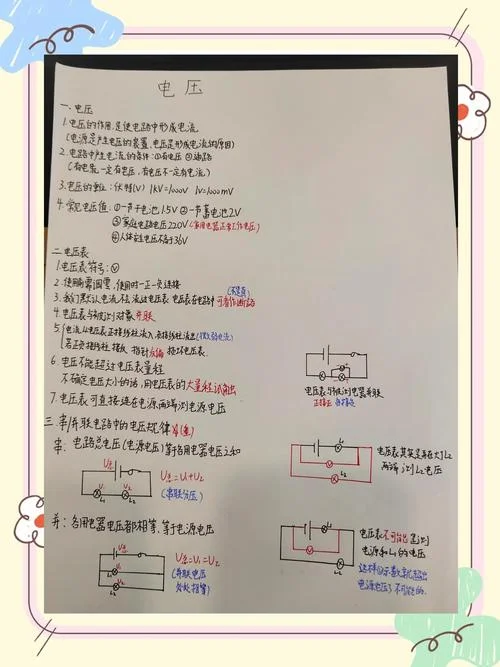 电压
一、电压
1.电压的作用:是使电路中形成电流
(电源是产生电压的装置、电压是形成电流的原因)
2.电路中产生电流的条件:①有电压 ②通路
(有电流一定有电压,有电压不一定有电流)
3.电压的单位:伏特(V) 1kV=1000V 1V=1000mV
4.常见电压值:①一节干电池1.5V ②一节蓄电池2V
③家庭电路电压220V(家用电器正常工作电压)
④人体安全电压不高于36V
二、电压表
1.电压表符号:Ⓥ
2.使用前需调零,使用时一正一负连接
3.我们默认电流不流过电压表 电压表在电路中可看作断路
4.电压表与被测对象并联
5.电流从电压表正接线柱流入,负接线柱流出(微弱电流)
若正负接线柱接反 指针反偏 损坏电压表.
6.电压不能超过电压表量程
不确定电压大小的话,用电压表的大量程试触
7.电压表可直接连在电源两端测电源电压
电压表与被测电器并联
三、串/并联电路中的电压规律
串:电路总电压(电源电压)等于各用电器电压之和
U总=U1+U2
(串联分压)
U总
U1
U2
L1
L2
L1
V
L2
电压表其实是并在了L2
两端 测L2电压
并:各用电器电压都相等,等于电源电压
U总=U1=U2
(并联电压
处处相等)
U总
U1
L1
U2
L2
L1
V
L2
电压表不可能是测
电源和L1的电压
电源电压了不可能的.